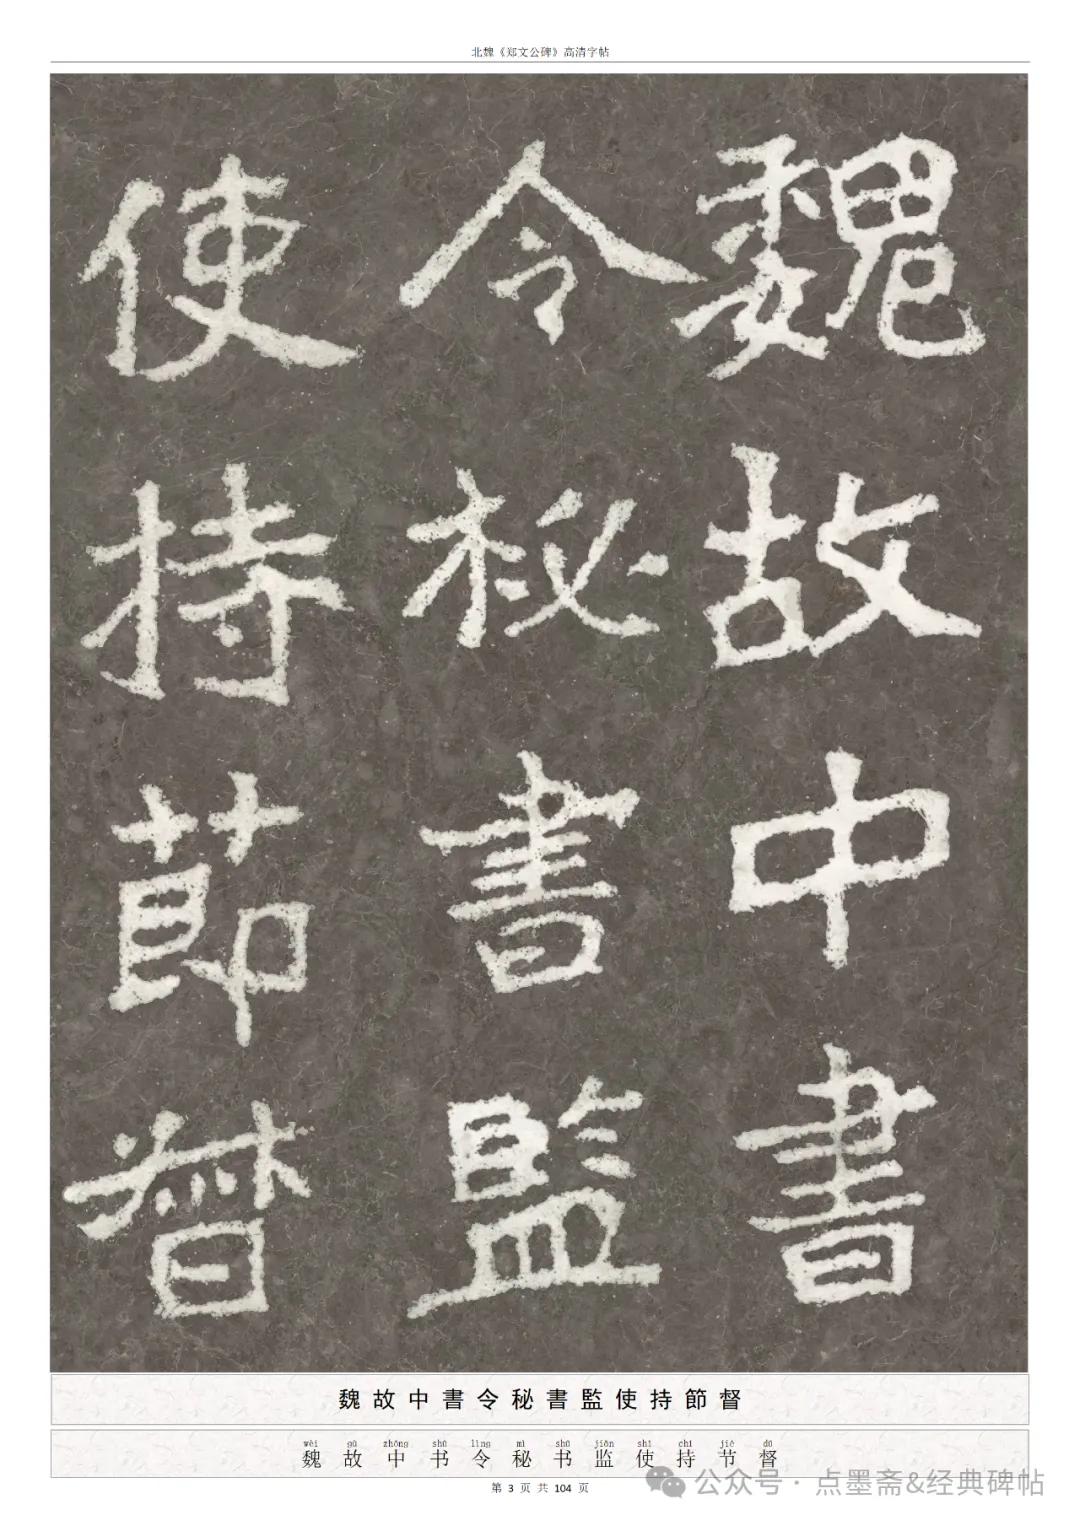 北魏《郑文公碑》高清字帖
魏故中書
令秘書監
使持節督
魏故中書令秘書監使持節督
wèi gù zhōng shū lìng mì shū jiān shǐ chí jié dū
魏故中书令秘书监使持节督
第 3 页 共 104 页
公众号 · 点墨斋&经典碑帖